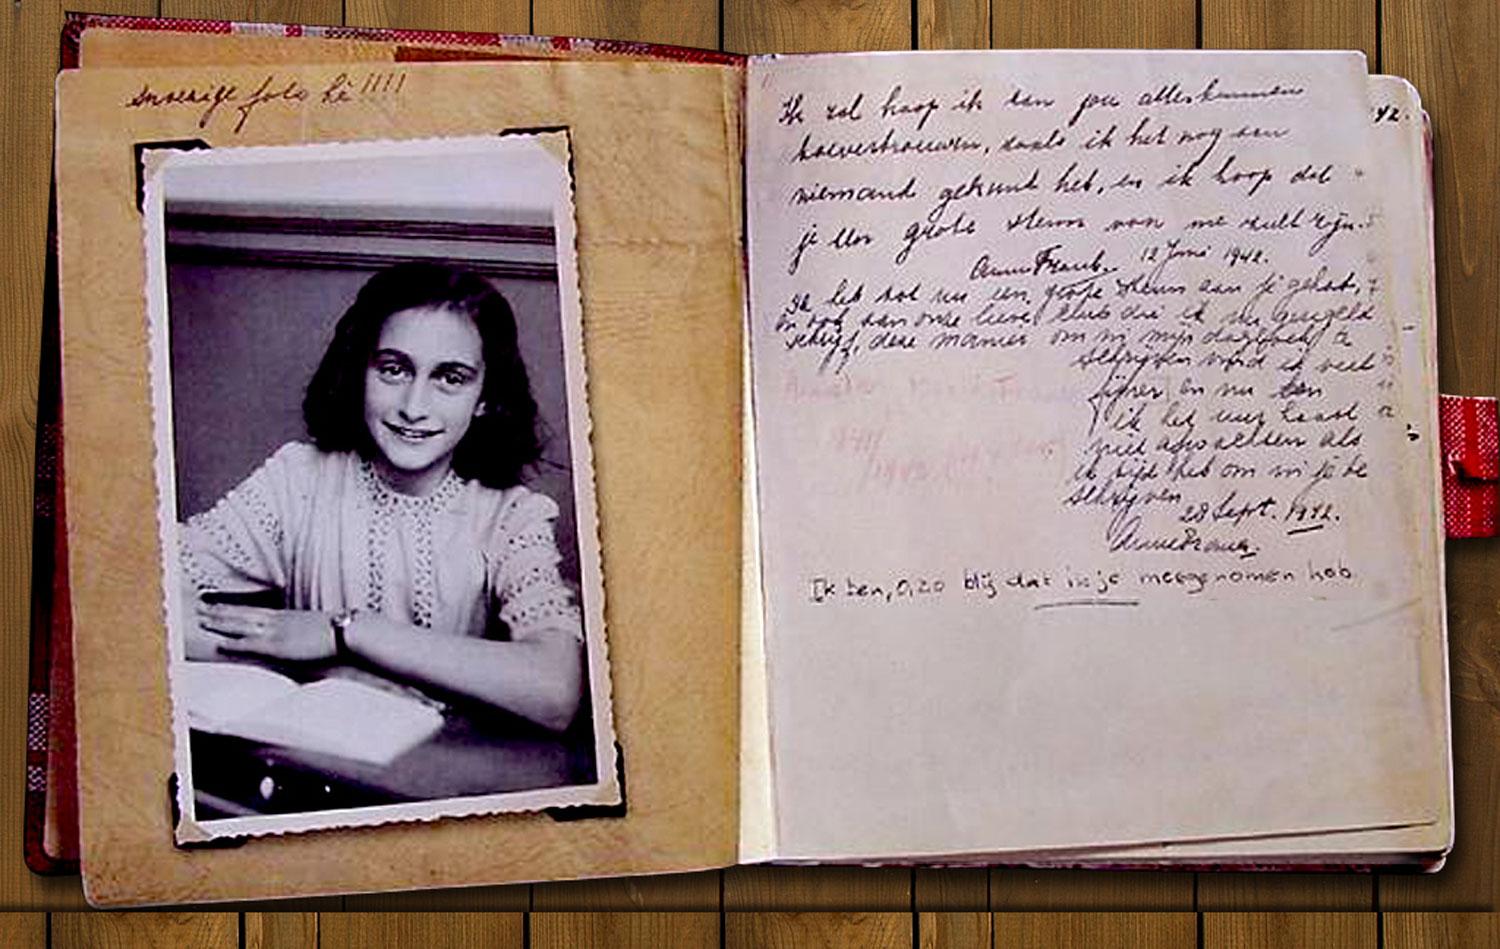 snoezige foto hè !!!!
Ik zal hoop ik aan jou alles kunnen
toevertrouwen, zoals ik het nog aan
niemand gekund heb, en ik hoop dat
je een grote steun van me zult zijn.
Anne Frank. 12 Juni 1942.
Ik heb tot nu een grote steun aan je gehad,
en ook aan onze lieve club die ik nu geregeld
schrijf, deze manier om in mijn dagboek te
schrijven vind ik veel
fijner en nu kan
ik het uur haast
niet afwachten als
ik tijd heb om in je te
schrijven
28 Sept. 1942.
Anne Frank.
Ik ben, O, zo blij dat ik je meegenomen heb
42.